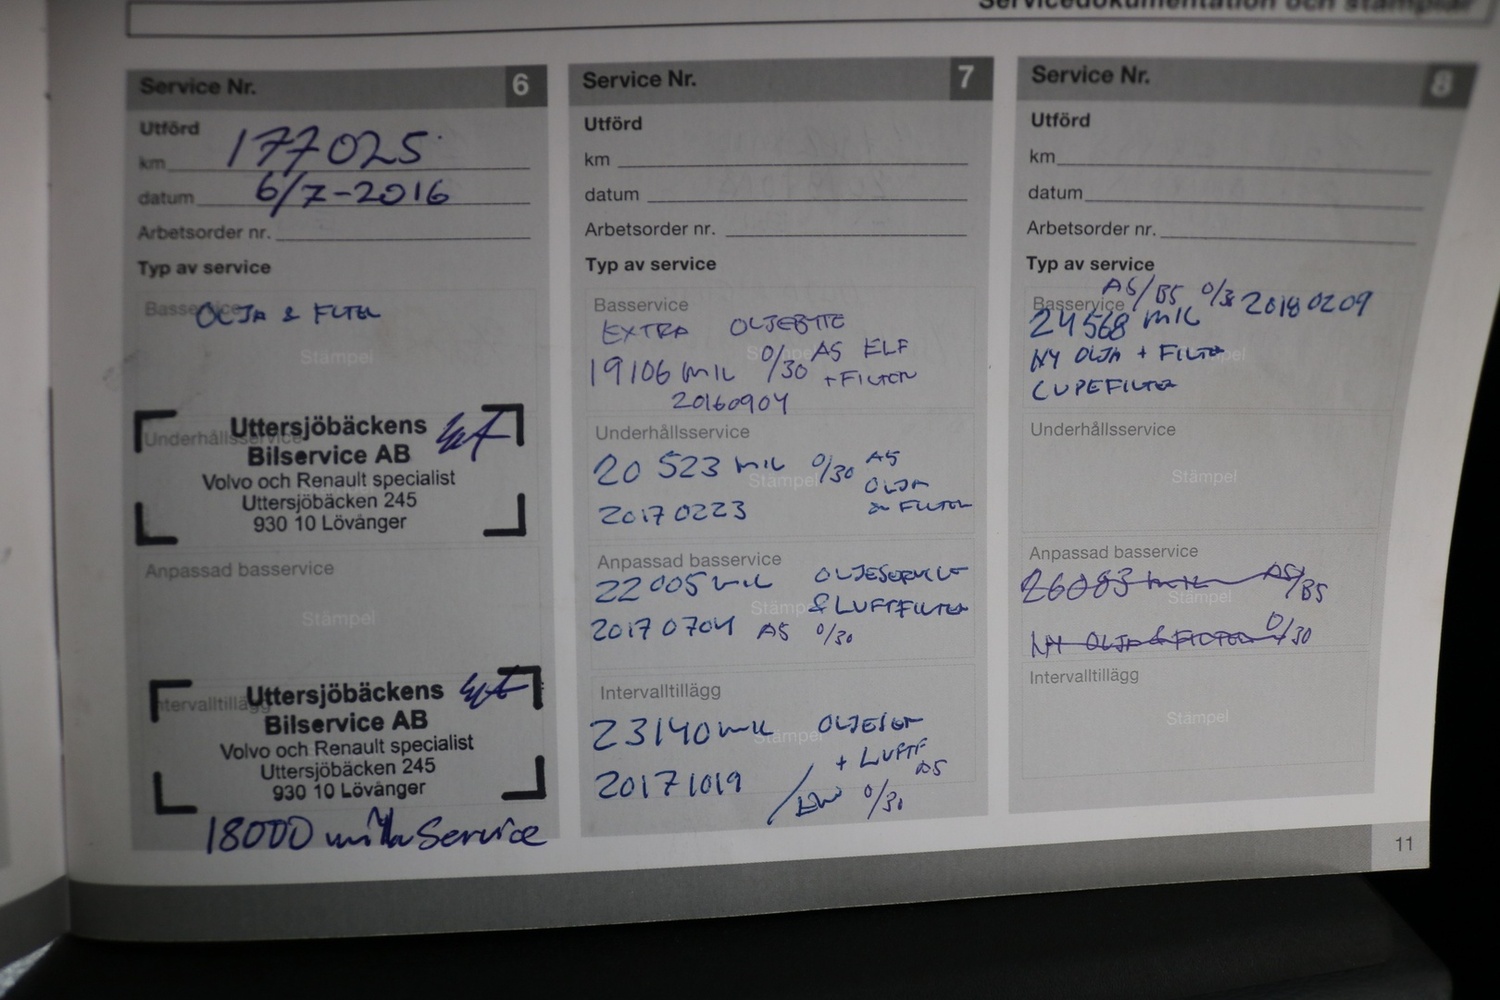 Servicedokumentation och stämplar
Service Nr. 6
Utförd
km 177025
datum 6/7-2016
Arbetsorder nr.
Typ av service
Basservice
OLJA & FILTER
Stämpel
Underhållsservice
Uttersjöbäckens
Bilservice AB
Volvo och Renault specialist
Uttersjöbäcken 245
930 10 Lövånger
Anpassad basservice
Stämpel
Intervalltillägg
Uttersjöbäckens
Bilservice AB
Volvo och Renault specialist
Uttersjöbäcken 245
930 10 Lövånger
18000 mila Service
Service Nr. 7
Utförd
km
datum
Arbetsorder nr.
Typ av service
Basservice
EXTRA OLJEBYTE
19106 MIL 0/30 A5 ELF
+ FILTER
20160904
Stämpel
Underhållsservice
20 523 MIL 0/30 A5
OLJA
20170223 & FILTER
Stämpel
Anpassad basservice
22005 MIL OLJESERVICE
& LUFTFILTER
20170704 A5 0/30
Stämpel
Intervalltillägg
23140 MIL OLJESER
+ LUFTF
20171019 A5
0/30
Stämpel
Service Nr. 8
Utförd
km
datum
Arbetsorder nr.
Typ av service
Basservice A5/B5 0/30 20180209
24568 MIL
NY OLJA + FILTER
CUPEFILTER
Stämpel
Underhållsservice
Stämpel
Anpassad basservice
26083 MIL A5/B5
Stämpel
NY OLJA & FILTER 0/30
Intervalltillägg
Stämpel
11